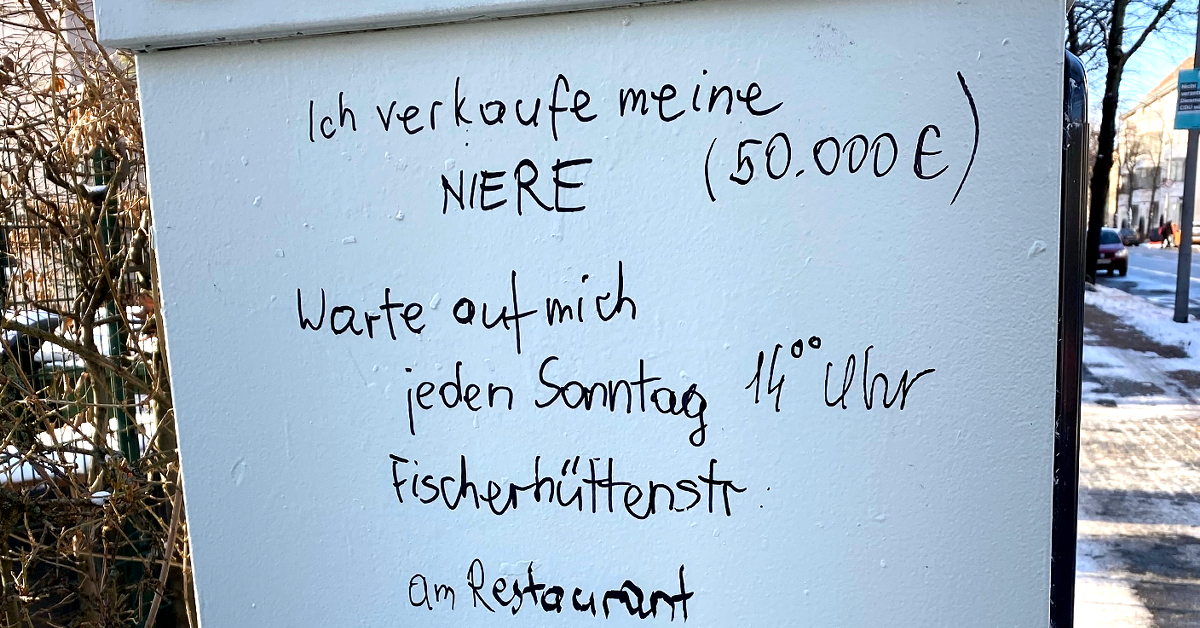 Ich verkaufe meine
NIERE (50.000 €)
Warte auf mich
jeden Sonntag 14⁰⁰ Uhr
Fischerhüttenstr.
am Restaurant